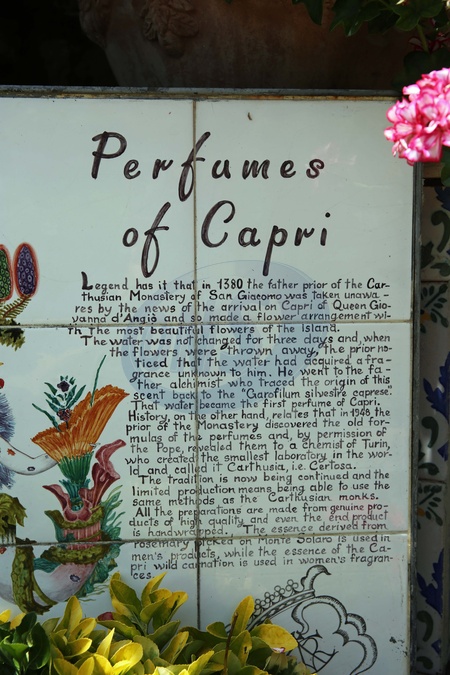 Perfumes
of Capri
Legend has it that in 1380 the father prior of the Car-
thusian Monastery of San Giacomo was taken unawa-
res by the news of the arrival on Capri of Queen Gio-
vanna D'Angiò and so made a flower arrangement wi-
th the most beautiful flowers of the island.
The water was not changed for three days and, when
the flowers were thrown away, the prior no-
ticed that the water had acquired a fra-
grance unknown to him. He went to the fa-
ther alchimist who traced the origin of this
scent back to the "Garofilum silvestre caprese".
That water became the first perfume of Capri.
History, on the other hand, relates that in 1948 the
prior of the Monastery discovered the old for-
mulas of the perfumes and, by permission of
the Pope, revealed them to a chemist of Turin,
who created the smallest laboratory in the wor-
ld and called it Carthusia, i.e. Certosa.
The tradition is now being continued and the
limited production means being able to use the
same methods as the Carthusian monks.
All the preparations are made from genuine pro-
ducts of high quality and even the end product
is handwrapped. The essence derived from
rosemary picked on Monte Solaro is used in
men's products, while the essence of the Ca-
pri wild carnation is used in women's fragran-
ces.